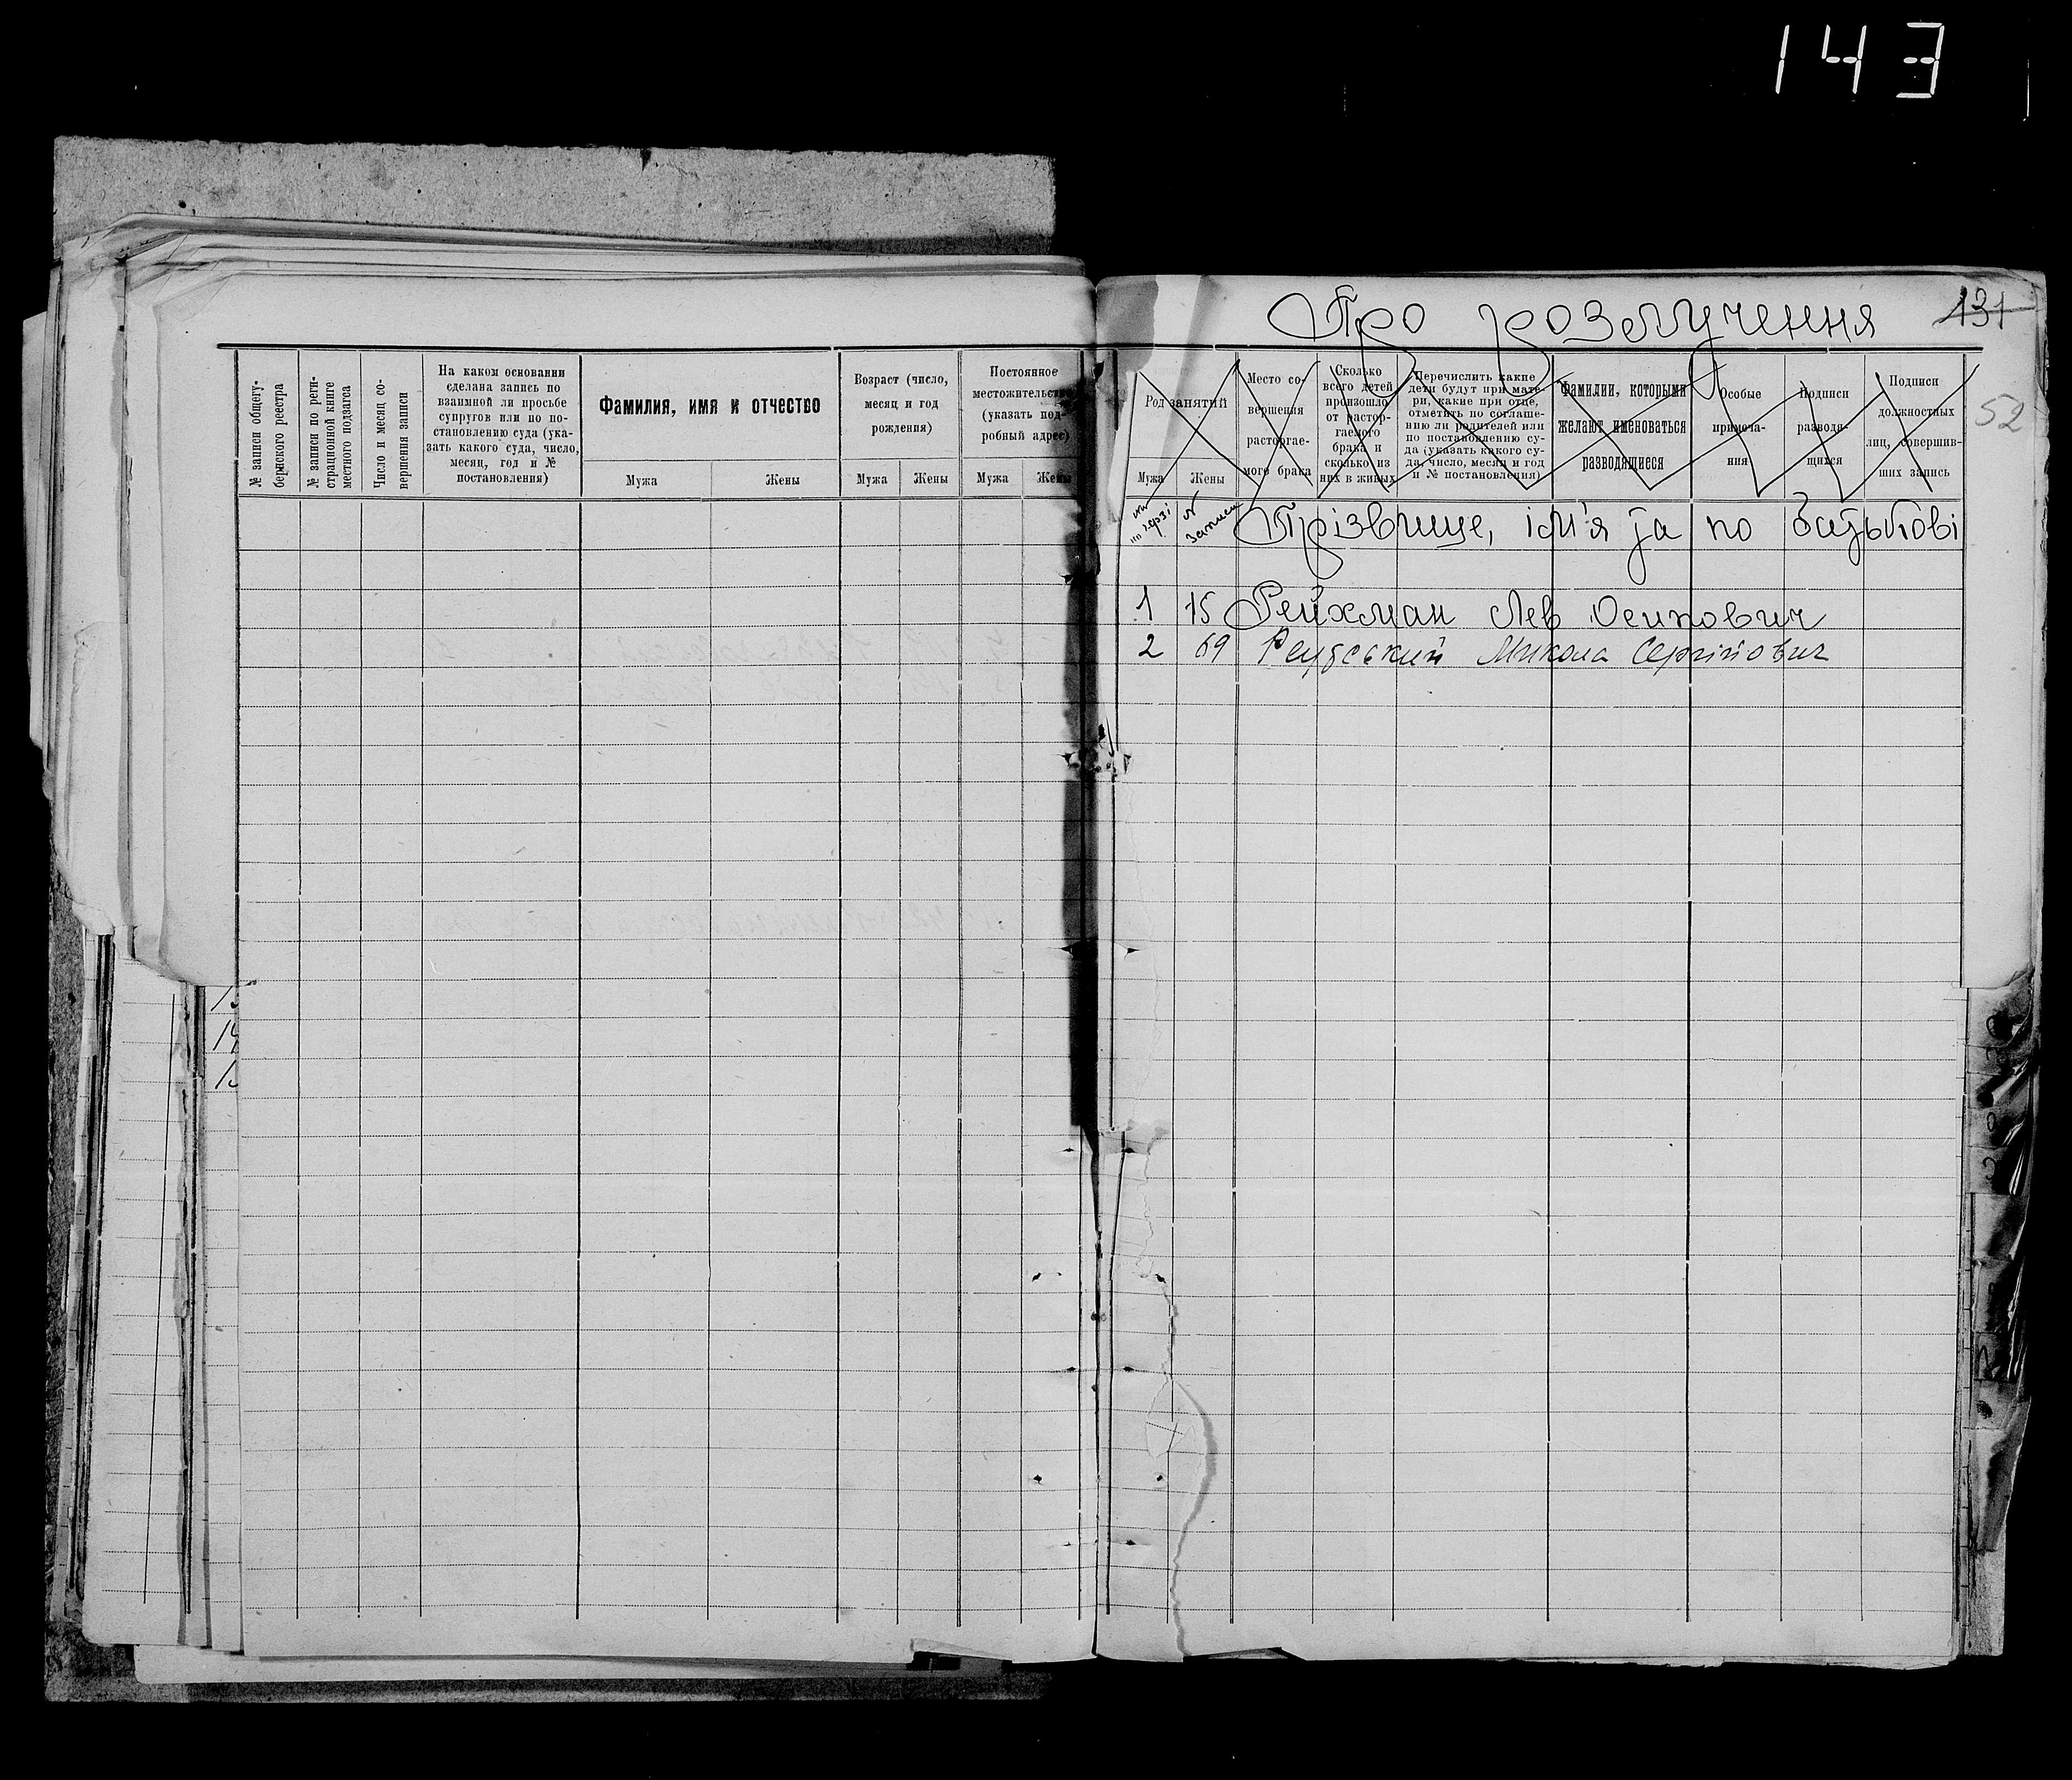 143
Про розлучення 131
52
№ записи общегубернского реестра
№ записи по регистрационной книге местного подзагса
Число и месяц совершения записи
На каком основании сделана запись по взаимной ли просьбе супругов или по постановлению суда (указать какого суда, число, месяц, год и № постановления)
Фамилия, имя и отчество
Мужа Жены
Возраст (число, месяц и год рождения)
Мужа Жены
Постоянное местожительство (указать подробный адрес)
Мужа Жены
Род занятий
Мужа Жены
Место совершения расторгаемого брака
Сколько всего детей произошло от расторгаемого брака и сколько из них в живых
Перечислить какие дети будут при матери, какие при отце, отметить по соглашению ли родителей или по постановлению суда (указать какого суда, число, месяц и год и № постановления)
Фамилии, которыми желают именоваться разводящиеся
Особые примечания
Подписи разводящихся
Подписи должностных лиц, совершивших запись
№ записи Прізвище, ім'я та по батькові
1 15 Рейхман Лев Осипович
2 69 Микола Сергійович
14